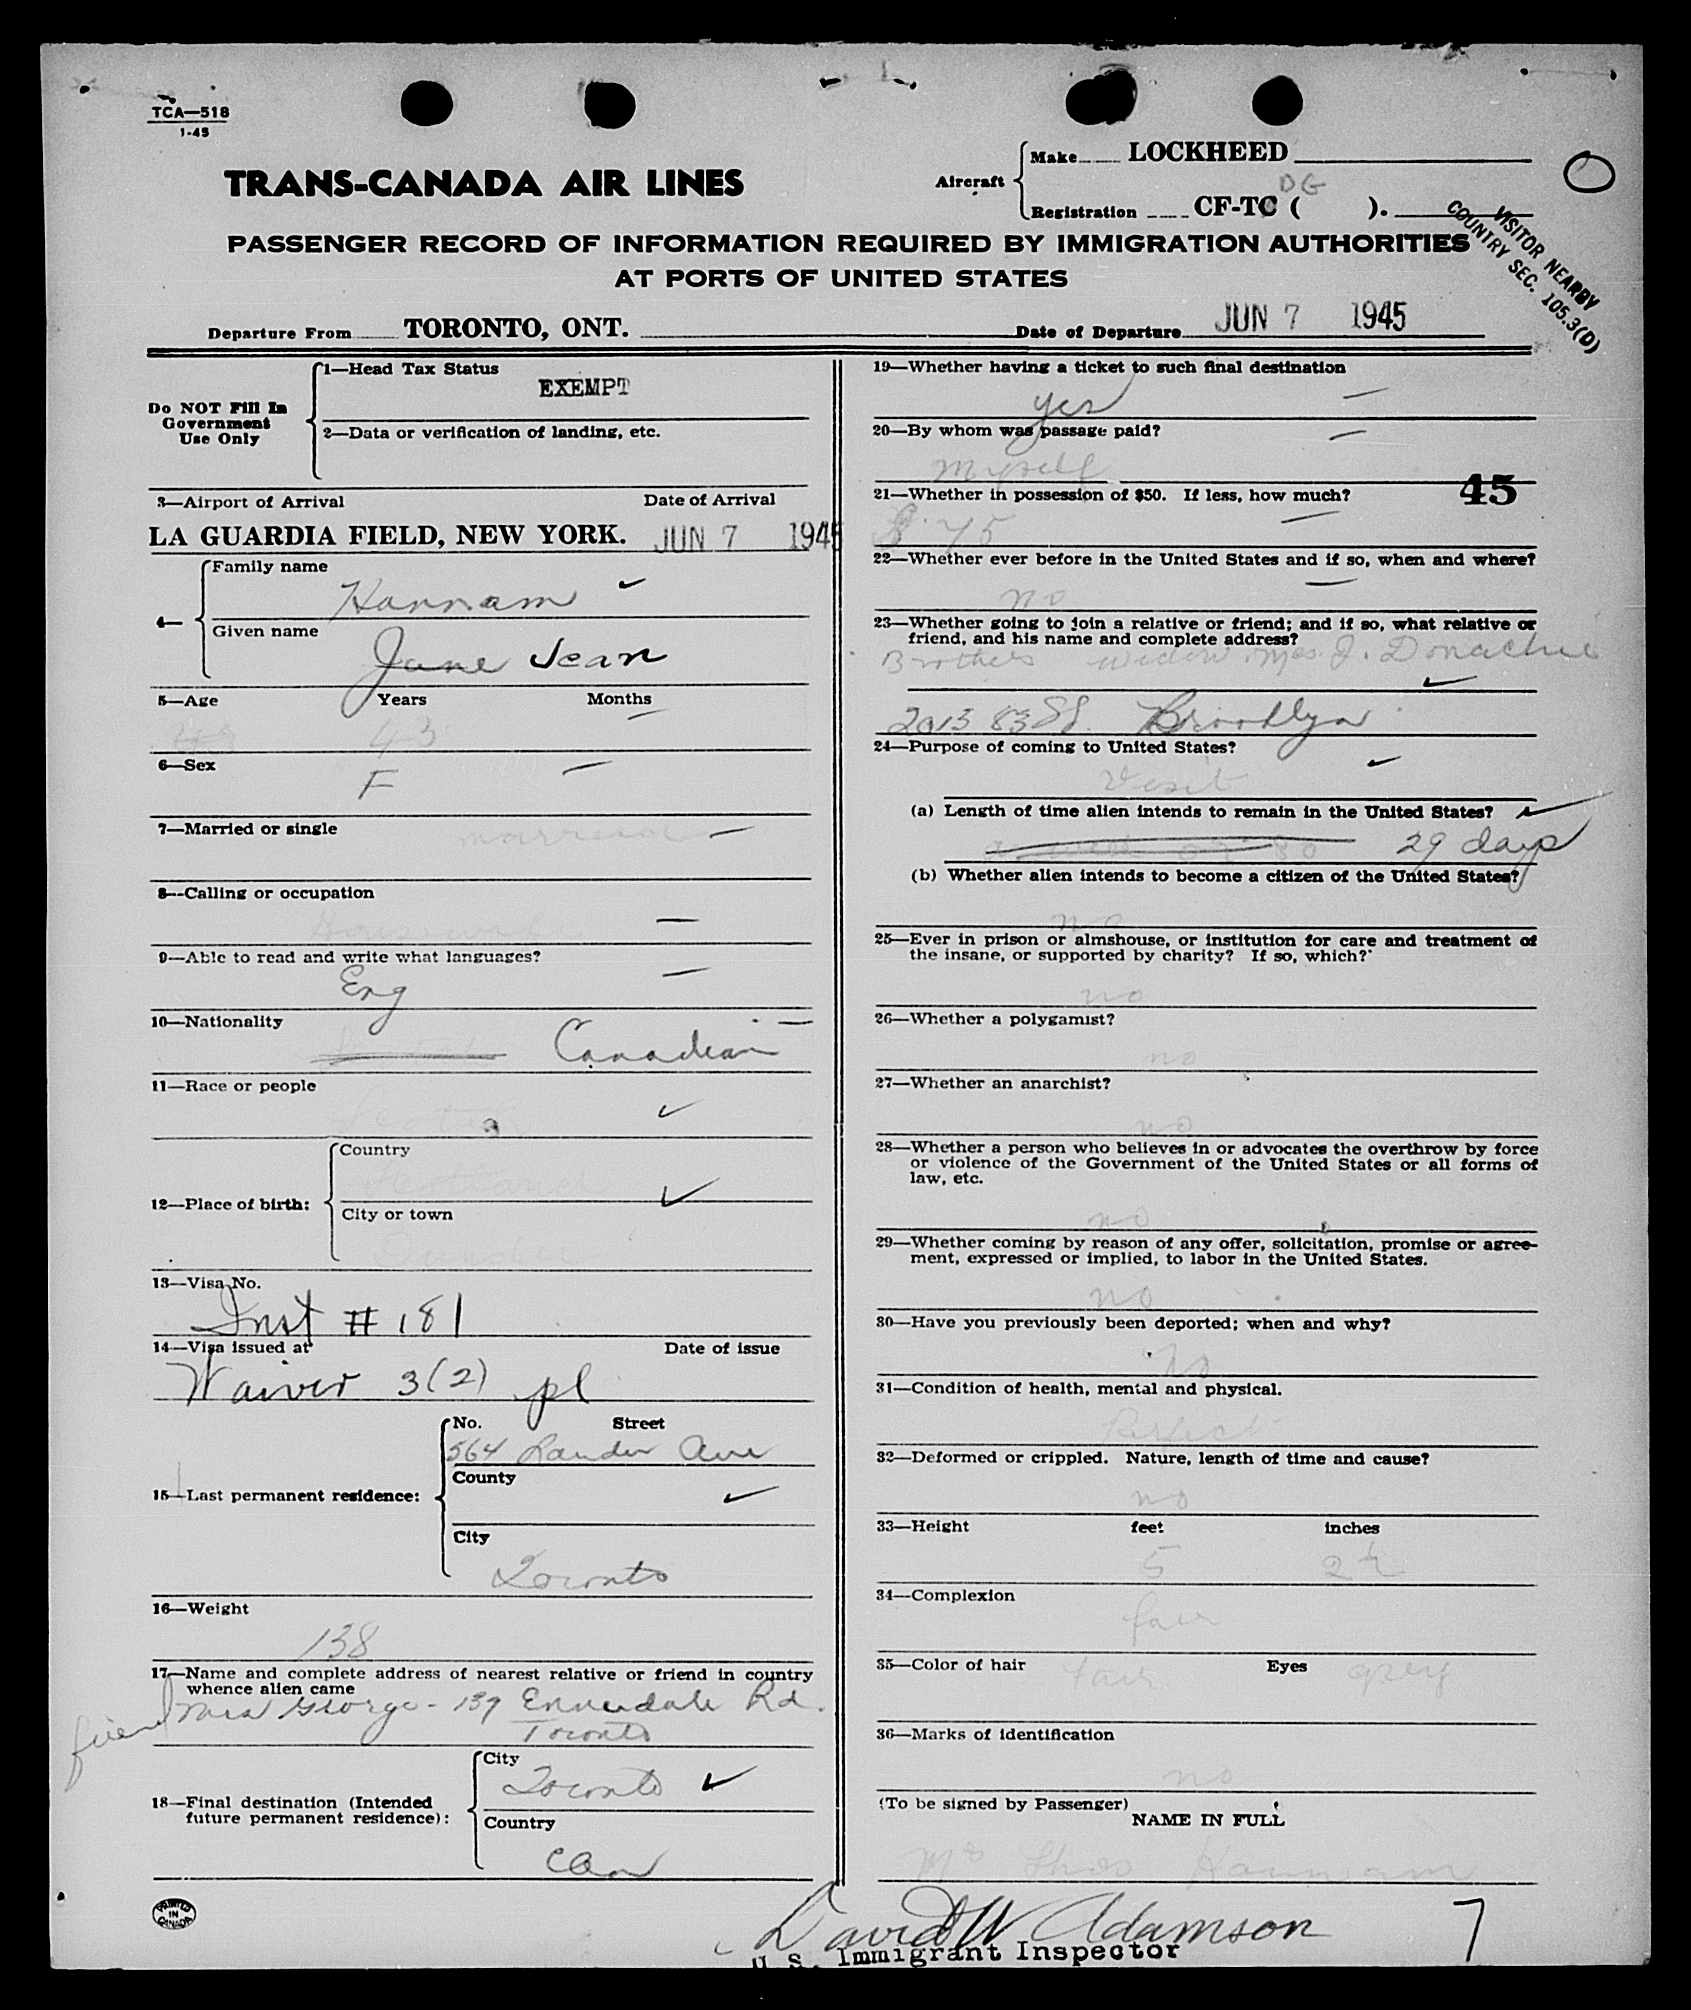 TCA—518
1-45
TRANS-CANADA AIR LINES
Aircraft
Make LOCKHEED
DG
Registration CF-TC ( ).
PASSENGER RECORD OF INFORMATION REQUIRED BY IMMIGRATION AUTHORITIES
AT PORTS OF UNITED STATES
VISITOR NEARBY
COUNTRY SEC. 105.3(D)
Departure From TORONTO, ONT. Date of Departure JUN 7 1945
Do NOT Fill In
Government
Use Only
1—Head Tax Status
EXEMPT
2—Data or verification of landing, etc.
3—Airport of Arrival Date of Arrival
LA GUARDIA FIELD, NEW YORK. JUN 7 1945
4—
Family name
Hannam
Given name
Jane Jean
5—Age Years Months
43
6—Sex
F
7—Married or single
married
8—Calling or occupation
9—Able to read and write what languages?
Eng
10—Nationality
Canadian
11—Race or people
12—Place of birth:
Country
Scotland
City or town
13—Visa No.
Inst # 181
14—Visa issued at Date of issue
Waiver 3(2) pl
15—Last permanent residence:
No. Street
564 Ave
County
City
Toronto
16—Weight
138
17—Name and complete address of nearest relative or friend in country
whence alien came
friend Mrs George - 139 Rd.
Toronto
18—Final destination (Intended
future permanent residence):
City
Toronto
Country
Can
PRINTED
IN
CANADA
19—Whether having a ticket to such final destination
yes
20—By whom was passage paid?
Myself
45
21—Whether in possession of $50. If less, how much?
$75
22—Whether ever before in the United States and if so, when and where?
no
23—Whether going to join a relative or friend; and if so, what relative or
friend, and his name and complete address?
Brothers widow. Mrs. J. Donachie
2013 83 St. Brooklyn
24—Purpose of coming to United States?
Visit
(a) Length of time alien intends to remain in the United States?
29 days
(b) Whether alien intends to become a citizen of the United States?
no
25—Ever in prison or almshouse, or institution for care and treatment of
the insane, or supported by charity? If so, which?
no
26—Whether a polygamist?
no
27—Whether an anarchist?
no
28—Whether a person who believes in or advocates the overthrow by force
or violence of the Government of the United States or all forms of
law, etc.
no
29—Whether coming by reason of any offer, solicitation, promise or agree-
ment, expressed or implied, to labor in the United States.
no
30—Have you previously been deported; when and why?
No
31—Condition of health, mental and physical.
Perfect
32—Deformed or crippled. Nature, length of time and cause?
no
33—Height feet inches
5 2½
34—Complexion
fair
35—Color of hair fair Eyes grey
36—Marks of identification
no
(To be signed by Passenger)
NAME IN FULL
Mrs Thos Hannam
David W Adamson
U. S. Immigrant Inspector
7